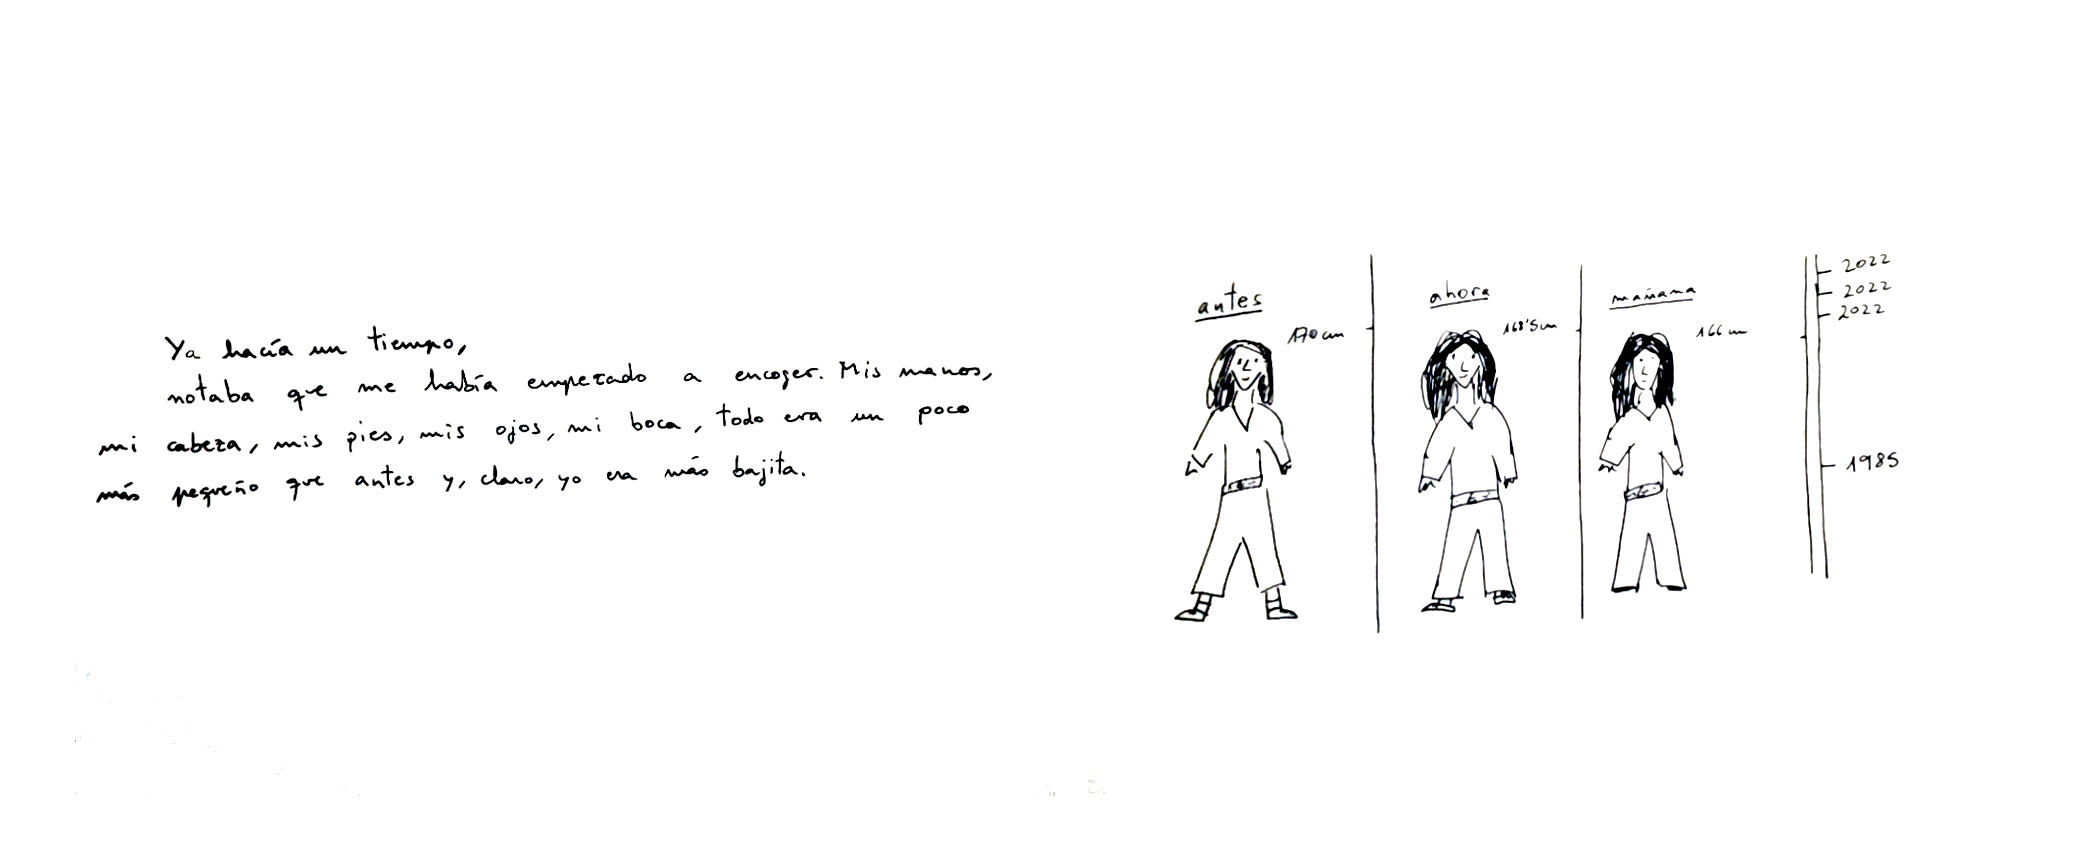 Ya hacía un tiempo,
notaba que me había empezado a encoger. Mis manos,
mi cabeza, mis pies, mis ojos, mi boca, todo era un poco
más pequeño que antes y, claro, yo era más bajita.
antes
170 cm
ahora
168'5 cm
mañana
166 cm
2022
2022
2022
1985